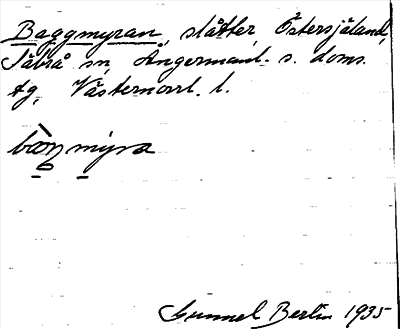 Baggmyran, slåtter, Östersjåland,
Säbrå sn, Ångermanl. s. doms.
tg, Västernorrl. l.
myra
Gunnel Berlin 1935